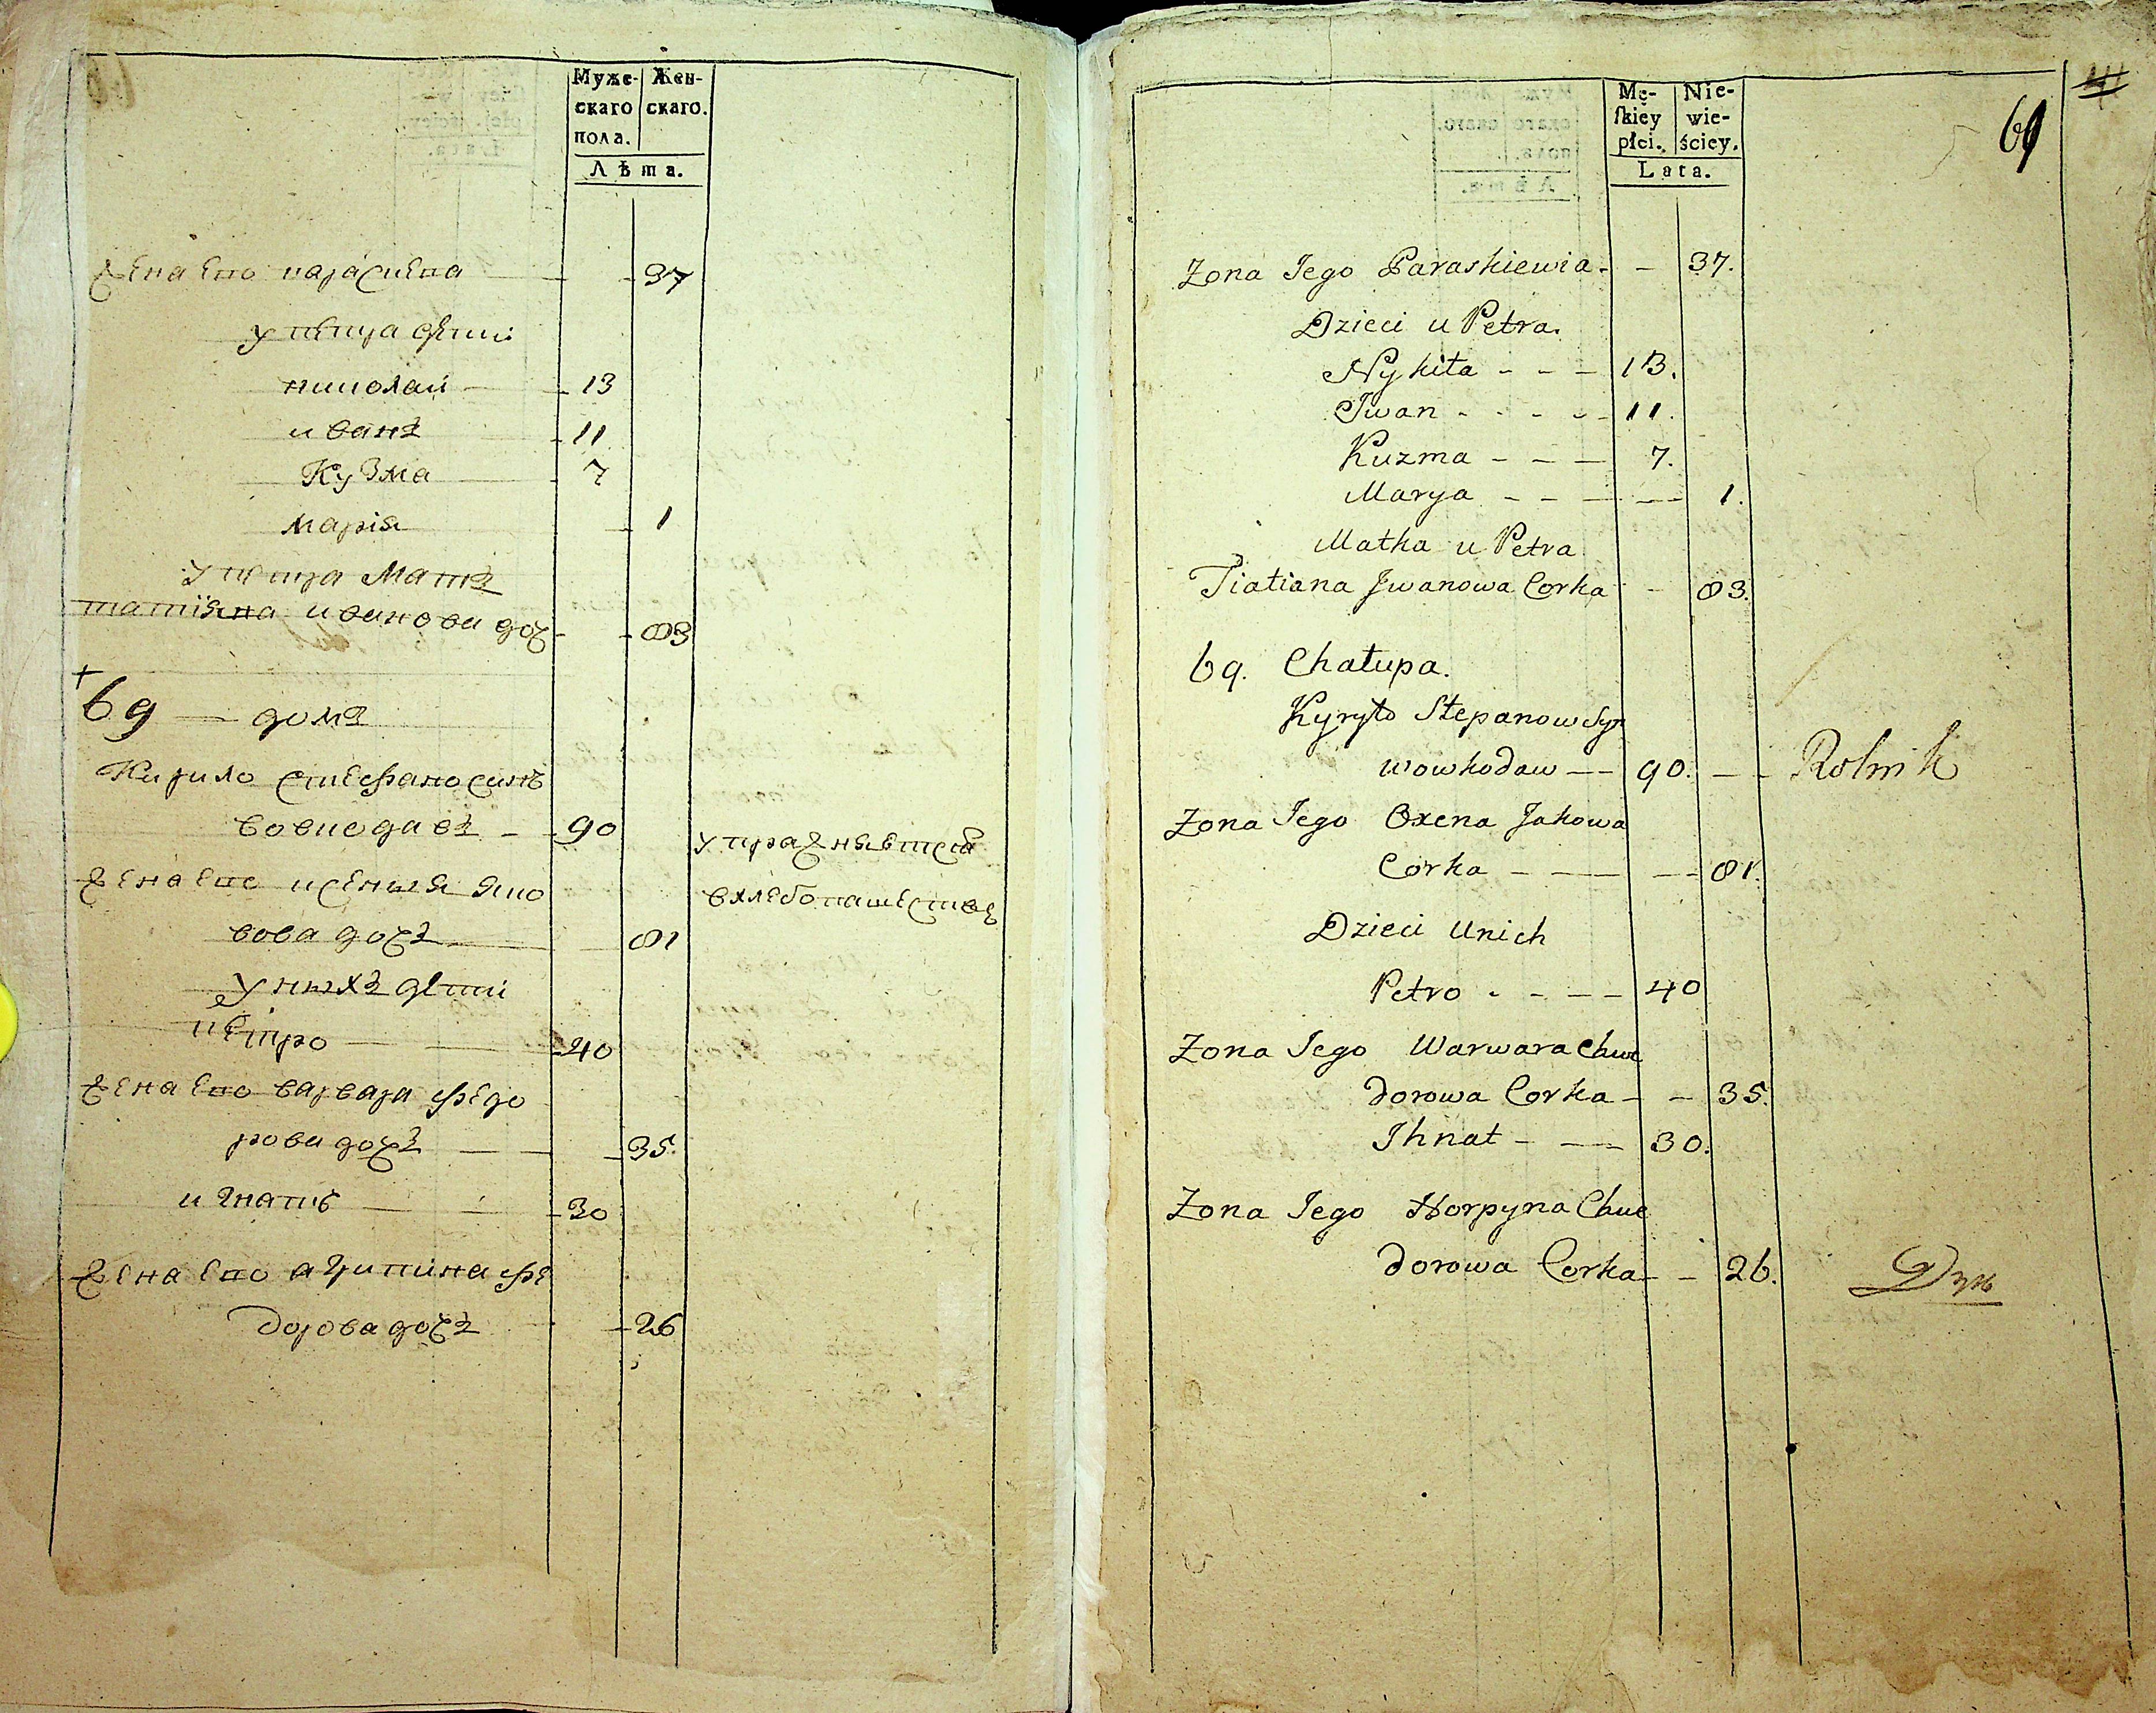 Муже-
скаго
пола.
Жен-
скаго.
Лѣта.
жена его параскева — - 37
у петра дети:
николай — - 13
иванъ - 11
Кузма - 7
мария - 1
у петра матъ
татияна иванова доч - - 83
+
69 — домъ
Кирило стефано синъ
вовкодавъ - - 90 упражняется
жена его ксения яко
в хлебопашестве
вова дочъ 81
у нихъ дети
петро — - 40
жена его варвара федо
рова дочъ — - 35.
игнатъ — - 30
жена его агрипина фе
дорова дочъ - 26
Mę-
skiey
płci.
Nie-
wie-
ściey.
Lata.
69
Zona Jego Paraskiewia - - 37.
Dzieci u Petra.
Nykita - - - 13.
Jwan - - - - 11.
Kuzma - - - 7.
Marya - - - - 1.
Matka u Petra
Tiatiana Jwanowa Corka - 83.
69. Chałupa.
Kyryło Stepanow Syn
wowkodaw — 90. — - Rolnik
Zona Jego Oxena Jakowa
Corka - — — - 81.
Dzieci Unich
Petro - - - - 40
Zona Jego Warwara Chwe
dorowa Corka - - 35.
Ihnat - — 30.
Zona Jego Horpyna Chwe
dorowa Corka - - 26.